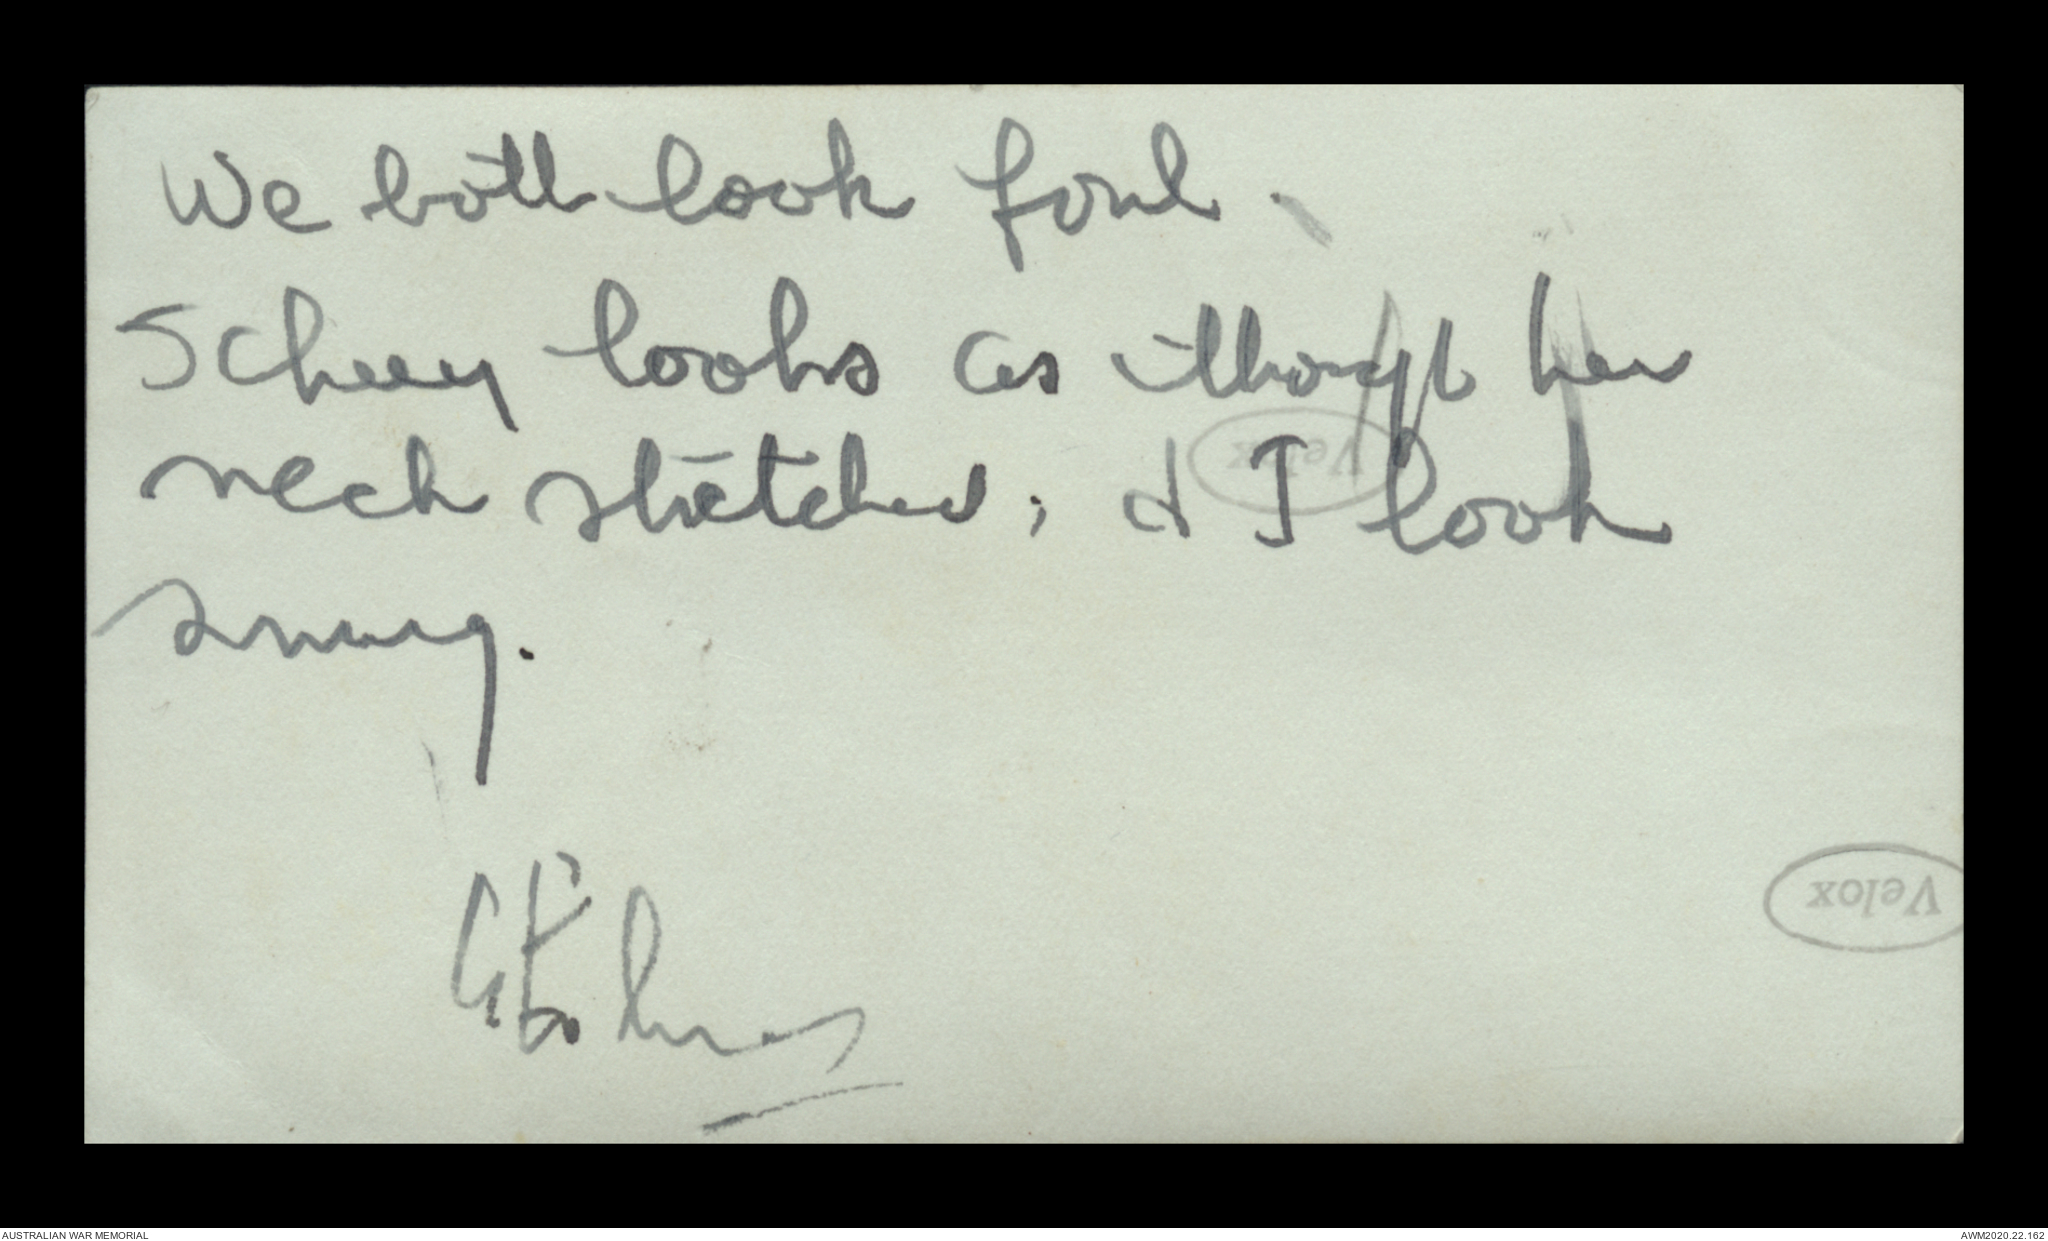 We both look foul.
Schuy looks as though her
neck stretched; & I look
smug.
Velox
Velox
AUSTRALIAN WAR MEMORIAL
AWM2020.22.162